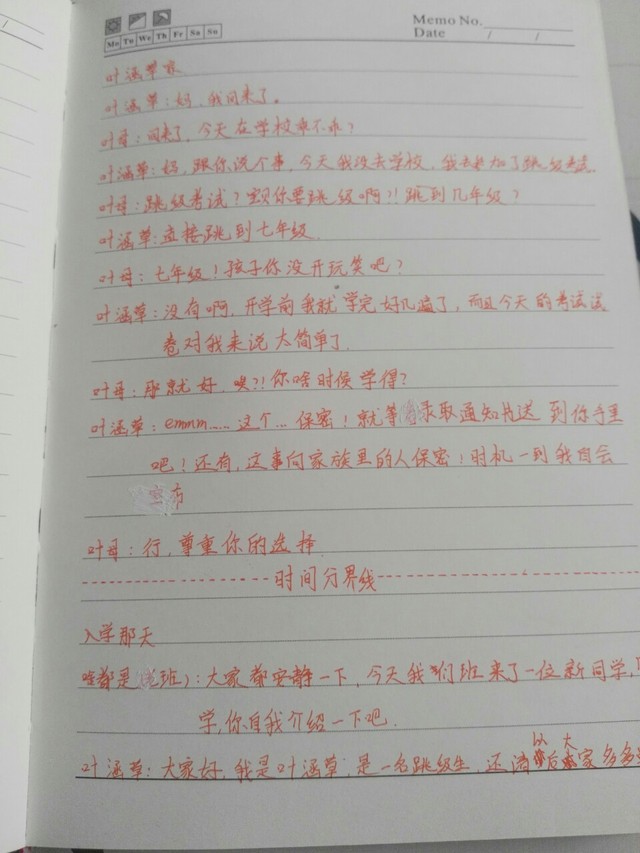 Memo No.
Mo Tu We Th Fr Sa Su
Date / /
叶涵草家
叶涵草：妈，我回来了。
叶母：回来了，今天在学校乖不乖？
叶涵草：妈，跟你说个事，今天我没去学校，我去参加了跳级考试
叶母：跳级考试？宝贝你要跳级啊？！跳到几年级？
叶涵草：直接跳到七年级.
叶母：七年级！孩子你没开玩笑吧？
叶涵草：没有啊，开学前我就学完好几遍了，而且今天的考试试
卷对我来说太简单了.
叶母：那就好，噢？！你啥时候学得？
叶涵草：emmm…… 这个… 保密！就等录取通知书送到你手里
吧！还有，这事向家族里的人保密！时机一到我自会
宣布
叶母：行，尊重你的选择.
时间分界线
入学那天
啥都是（班）：大家都安静一下，今天我们班来了一位新同学，
学，你自我介绍一下吧.
叶涵草：大家好，我是叶涵草，是一名跳级生，还请以后大家多多